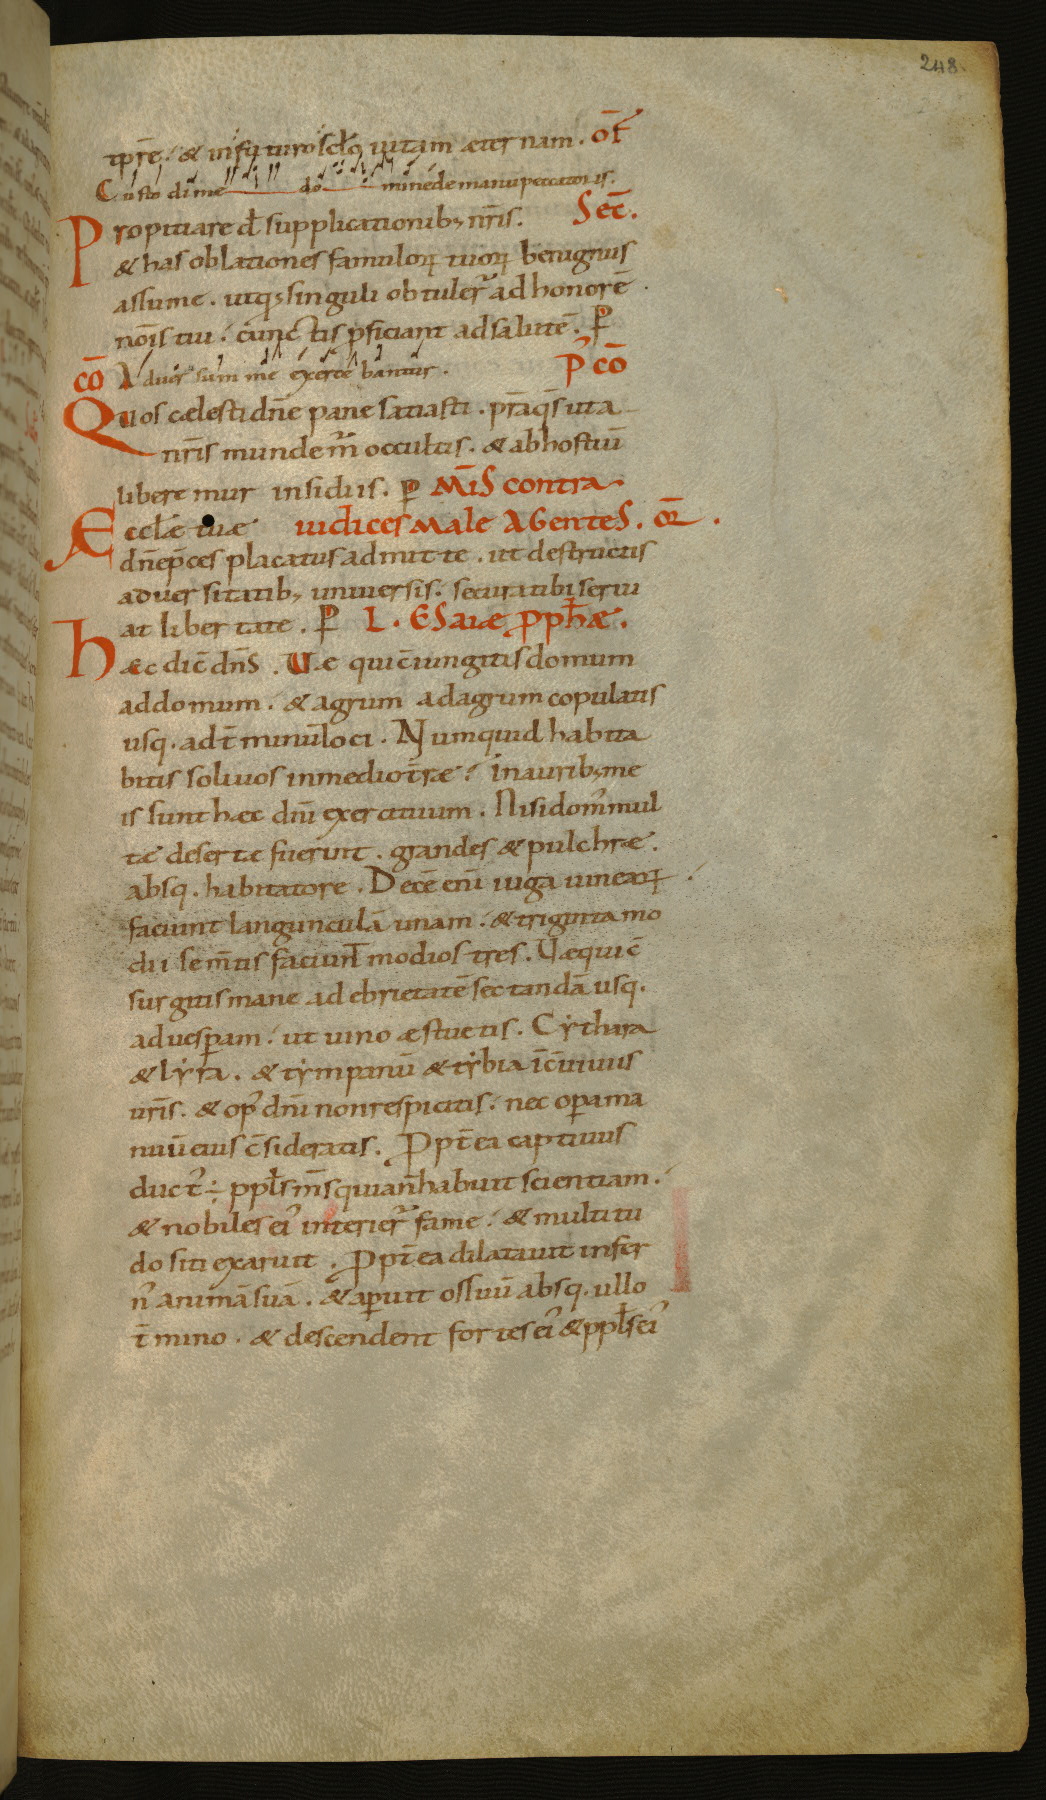 248.
tp̄re. & infuturo sc̄lo uitam æternam. of̄
Custodi me do mine de manu peccatoris.
Propitiare d̄s supplicationib; nr̄is. Sec̄.
& has oblationes famuloꝝ tuoꝝ benignus
assume. utq; singuli obtuler̄ ad honorē
nōis tui. cunctis ꝓficiant ad salutē. ꝑ
cō Aduersum me exercebantur. P̄ cō
Quos cælesti dn̄e pane satiasti. pr̄a qs̄ ut a
nr̄is mundemur̄ occultis. & ab hostiū
liberemur insidiis. ꝑ Mīs contra
Æcclæ tuæ iudices male agentes. or̄.
dn̄e p̄ces placatus admitte. ut destructis
aduersitatib; uniuersis. secura tibi serui
at libertate. ꝑ L. Esaiæ ꝓph̄æ.
Hæc dic̄ dn̄s. Uæ qui c̄iungitis domum
ad domum. & agrum ad agrum copulatis
usq. ad t̄minū loci. Numquid habita
bitis soli uos in medio t̄ræ? In aurib; me
is sunt hæc dn̄i exercituum. Nisi dom̄ mul
tæ desertæ fuerint. grandes & pulchræ.
absq. habitatore. Decē enī iuga uineaꝝ.
faciunt langunculā unam. & triginta mo
dii sem̄tis faciunt modios tres. Uæ qui c̄
surgitis mane ad ebrietatē sectandā usq.
ad uesꝑam. ut uino æstuetis. Cythara
& lyra. & tympanū & tybia ī c̄uiuiis
ur̄is. & op̄ dn̄i non respicitis. nec oꝑa ma
nuū eius c̄sideratis. Ꝓpt̄ea captiuus
duct̄ ÷ ppl̄s m̄s quia n̄ habuit scientiam.
& nobiles ei̾ interier̄ fame. & multitu
do siti exaruit. Ꝓpt̄ea dilatauit infer
n̾ animā suā. & aꝑuit os suū absq. ullo
t̄mino. & descendent fortes ei̾ & ppl̄s ei̾